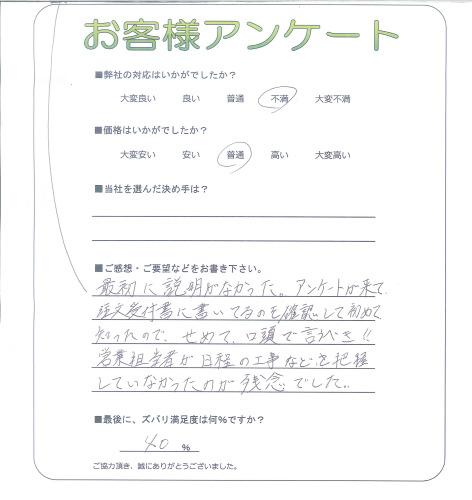 お客様アンケート
■弊社の対応はいかがでしたか？
大変良い 良い 普通 不満 大変不満
■価格はいかがでしたか？
大変安い 安い 普通 高い 大変高い
■当社を選んだ決め手は？
■ご感想・ご要望などをお書き下さい。
最初に説明がなかった。アンケートが来て
注文受付書に書いてるのを確認して初めて
知ったので、せめて、口頭で言うべき!!
営業担当者が日程の工事などを把握
していなかったのが残念でした。
■最後に、ズバリ満足度は何%ですか？
40 %
ご協力頂き、誠にありがとうございました。